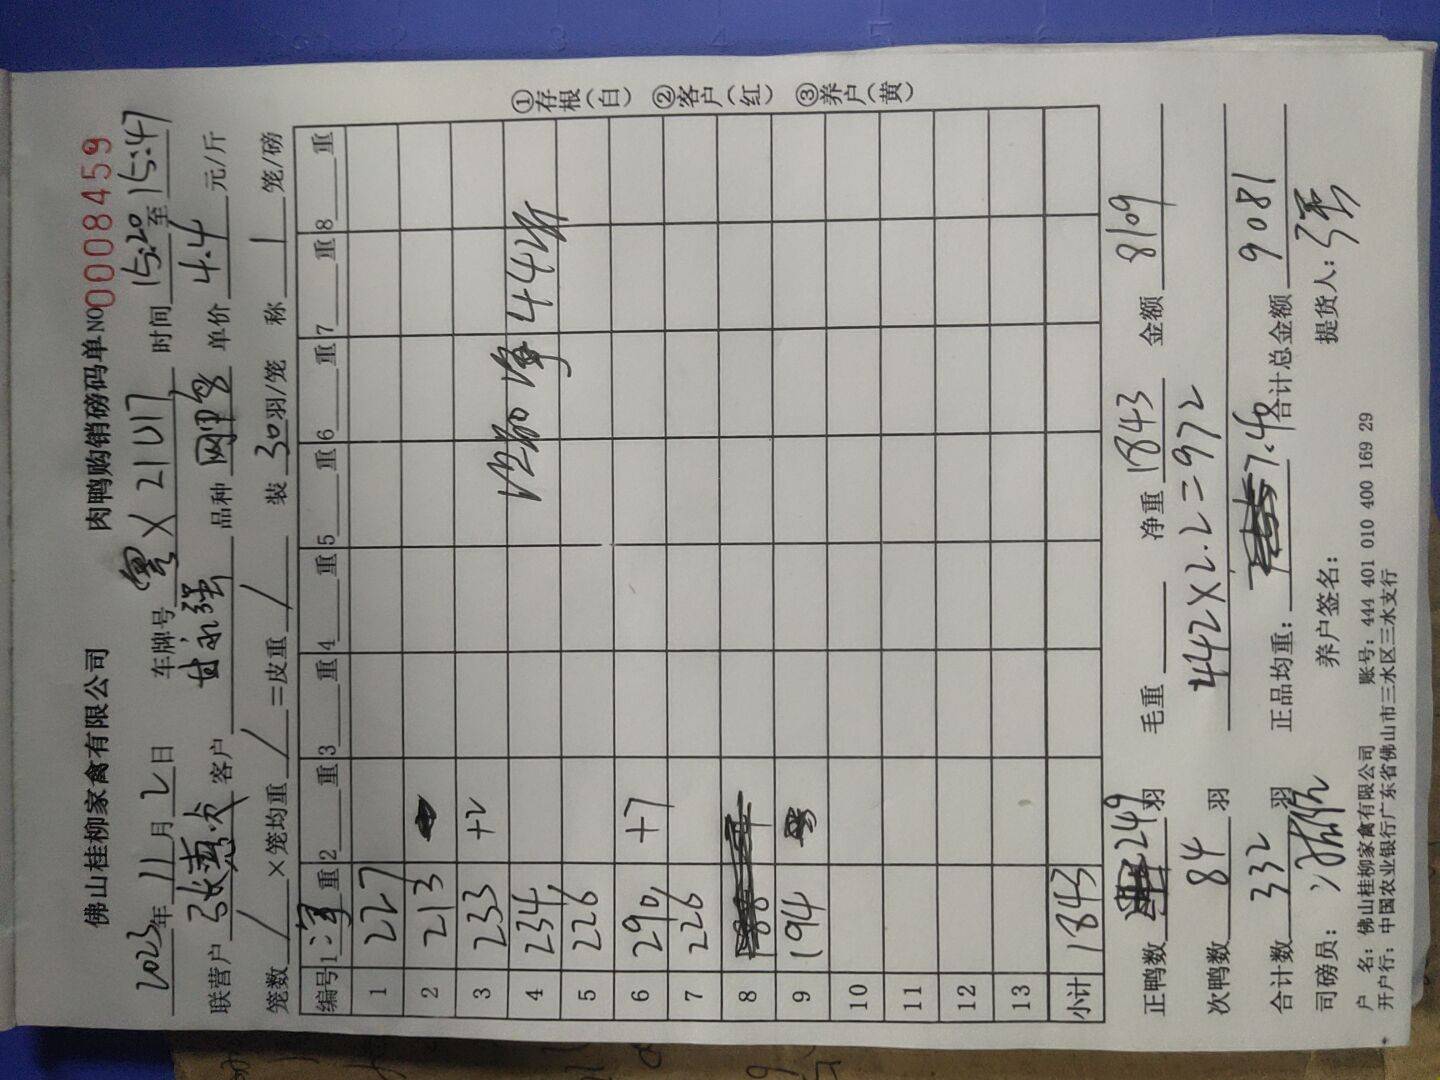 佛山桂柳家禽有限公司 肉鸭购销磅码单 NO 0008459
2023年11月2日 车牌号 粤X21U17 时间 15:20至15:47
联营户 客户 甘永强 品种 单价 4.4 元/斤
笼数 / ×笼均重 / =皮重 / 装 30 羽/笼 称 1 笼/磅
编号 1 净重 2 重 3 重 4 重 5 重 6 重 7 重 8 重
1 227
2 213
3 233 +2
4 234
5 226
6 290 +7
7 226
8
9 194
10
11
12
13
净442斤
小计 1843
正鸭数 249 羽 毛重 净重 1843 金额 8109
次鸭数 84 羽 442×2.2=972
合计数 332 羽 正品均重: 7.40 合计总金额 9081
司磅员: 养户签名: 提货人:
户 名:佛山桂柳家禽有限公司 账号:444 401 010 400 169 29
开户行:中国农业银行广东省佛山市三水区三水支行
①存根(白) ②客户(红) ③养户(黄)